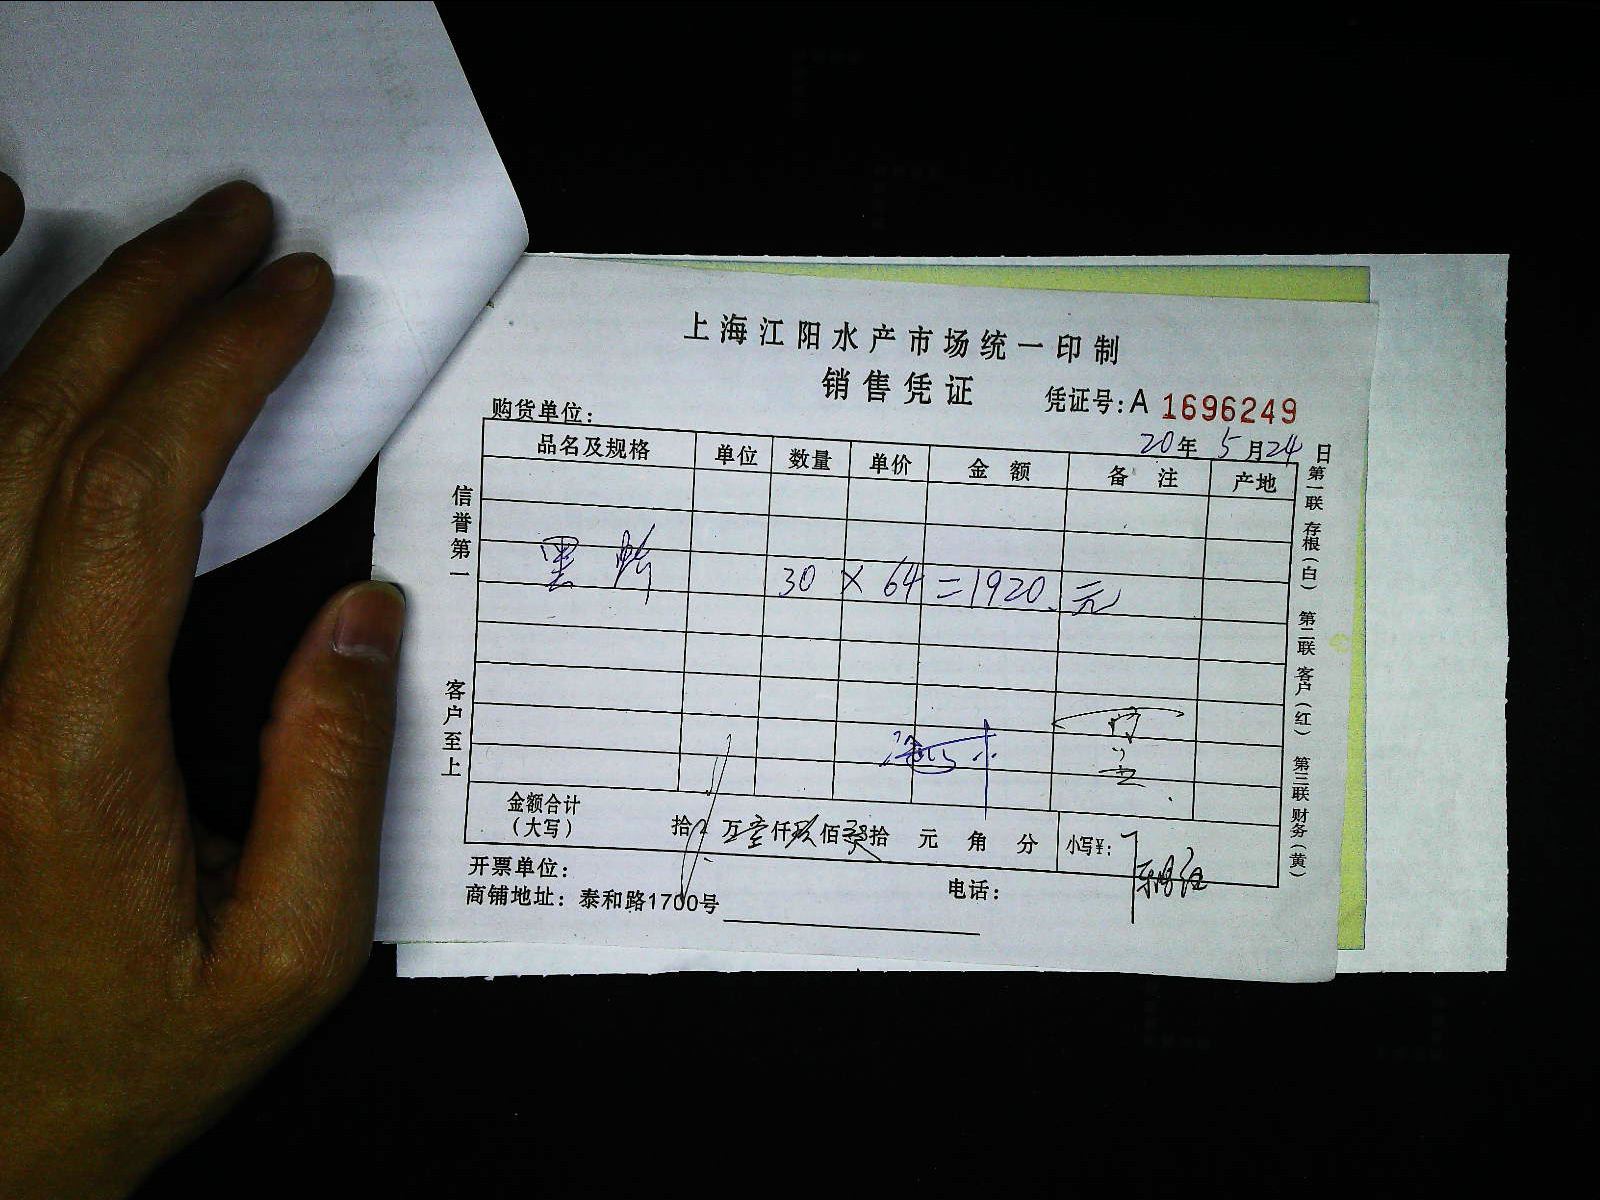 上海江阳水产市场统一印制
销售凭证
凭证号:A 1696249
购货单位:
20年 5月24日
品名及规格 单位 数量 单价 金额 备注 产地
黑 30 × 64 = 1920 元
信誉第一
客户至上
第一联 存根(白) 第二联 客户(红) 第三联 财务(黄)
金额合计
(大写)
拾 万壹仟玖佰贰拾 元 角 分 小写¥:
开票单位:
电话:
商铺地址: 泰和路1700号